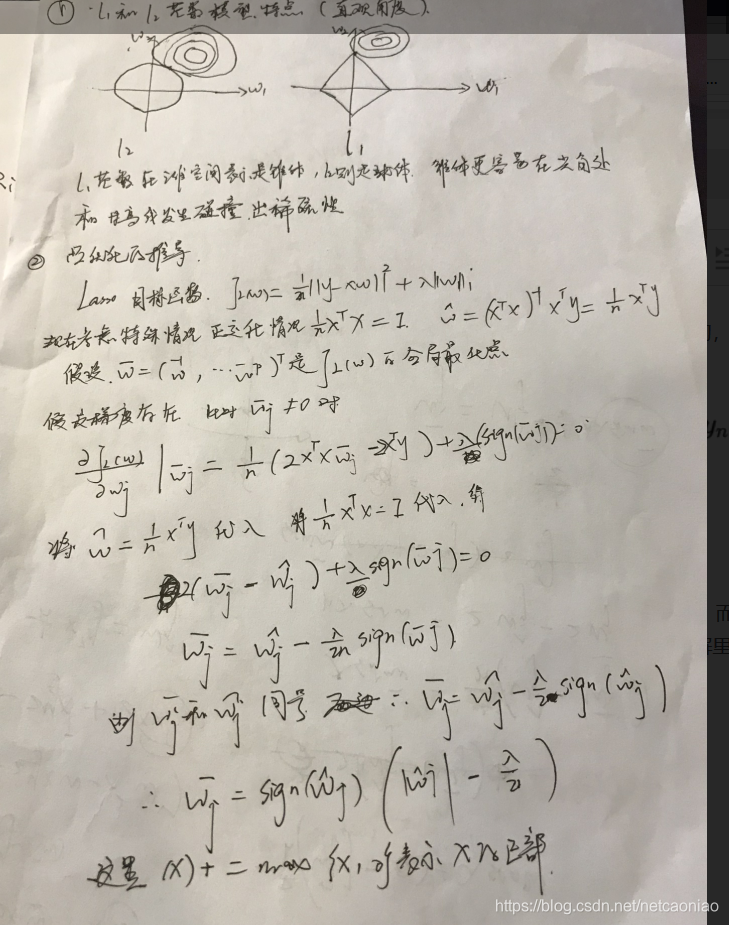 ① l₁ 和 l₂ 范数模型特点 (直观角度).
w₁ w₁
l₂ l₁
l₁范数在 空间表示是锥体, l₂则是球体. 锥体更容易在尖角处
和等高线发生碰撞.出稀疏性
②
Lasso 目标函数. J_L(w) = 1/n ||y-xw||² + λ||w||₁
现在考虑特殊情况 正交化情况 1/n xᵀx = I. ŵ = (xᵀx)⁻¹xᵀy = 1/n xᵀy
假设. w̄ = (w̄¹, … w̄ᵖ)ᵀ 是 J_L(w) 的全局最优点
假设梯度存在 此时 w̄j ≠ 0 时
∂J_L(w)/∂wj | w̄j = 1/n (2xᵀx w̄j - 2xᵀy) + λ(sign(w̄j)) = 0
将 ŵ = 1/n xᵀy 代入 将 1/n xᵀx = I 代入. 得
2(w̄j - ŵj) + λ sign(w̄j) = 0
w̄j = ŵj - λ/2n sign(w̄j)
由 w̄j 和 ŵj 同号 ∴ w̄j = ŵj - λ/2 sign(ŵj)
∴ w̄j = sign(ŵj) (|ŵj| - λ/2)
这里 (x)+ = max{x, 0}表示 x 的正部.
https://blog.csdn.net/netcaoniao